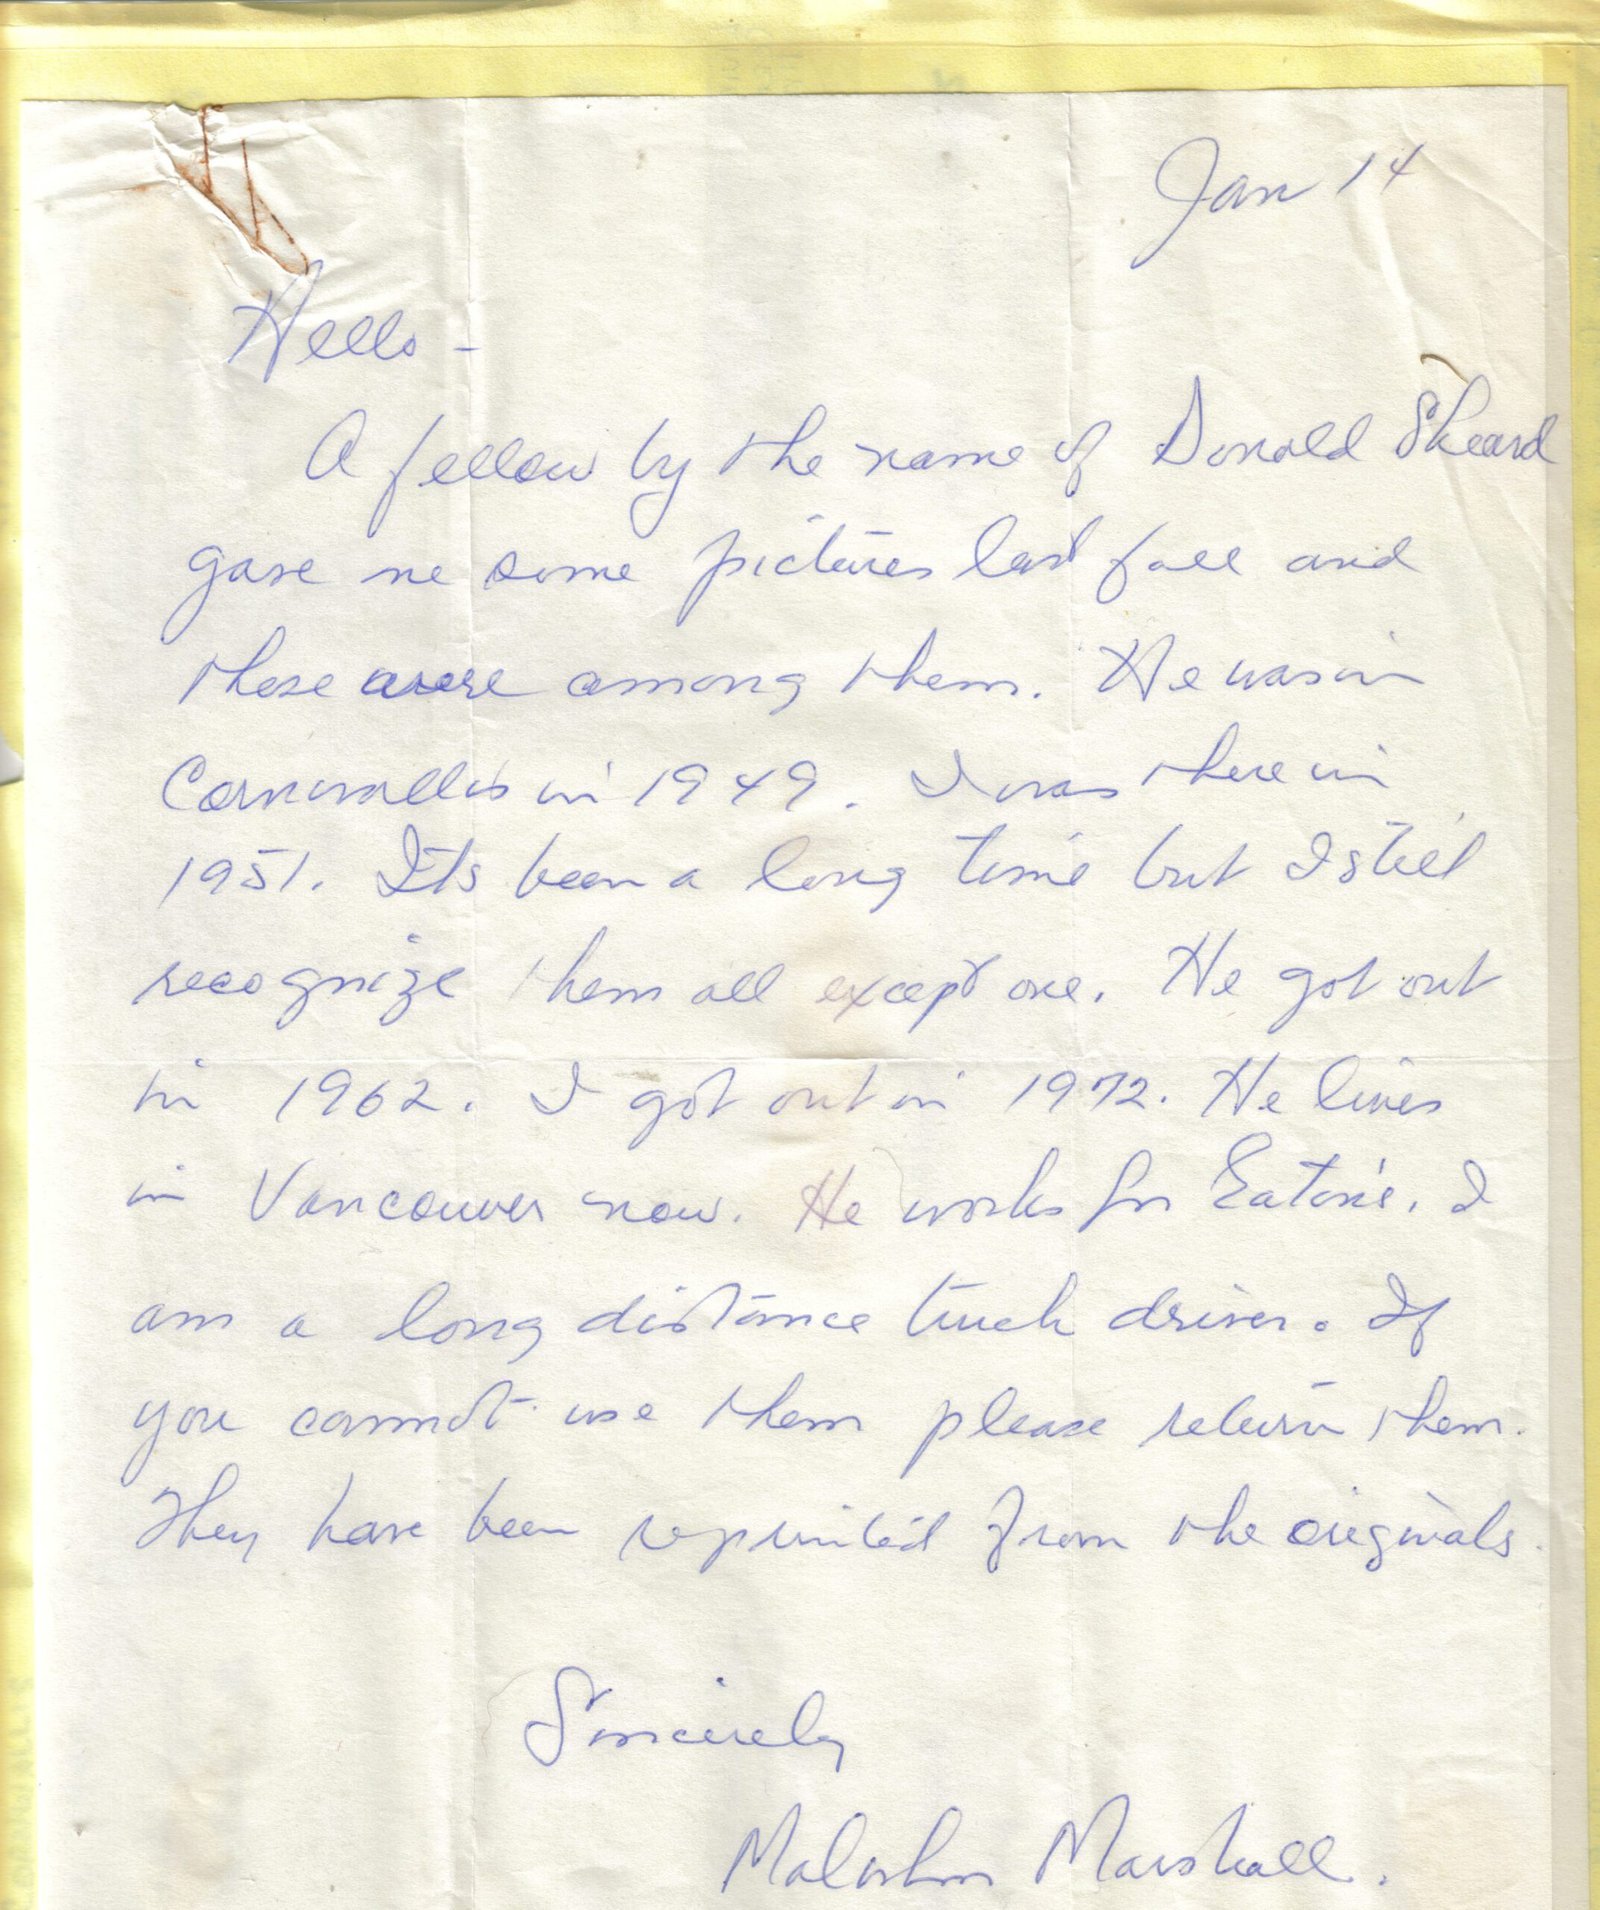 Jan 14
Hello -
A fellow by the name of Donald Sheard
gave me some pictures last fall and
these were among them. He was in
Cornwallis in 1949. I was there in
1951. Its been a long time but I still
recognize them all except one. He got out
in 1962. I got out in 1972. He lives
in Vancouver now. He works for Eaton's. I
am a long distance truck driver. If
you cannot use them please return them.
They have been reprinted from the originals.
Sincerely
Malcolm Marshall.